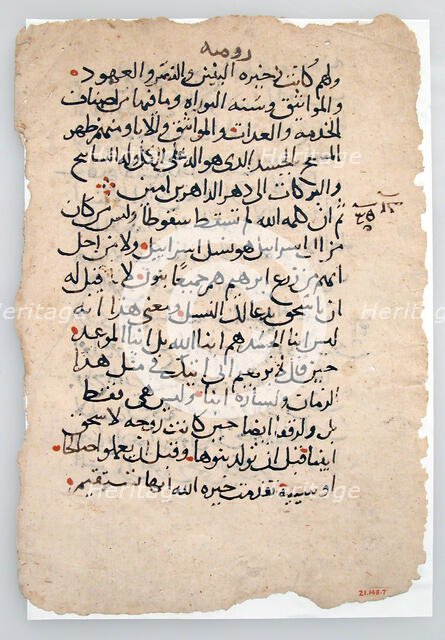 رومه
ولهم كانت ذخيره البنين والعهود
والمواثيق وسنه التوراه وما فيها من اصناف
الخدمه والعدات والمواثيق والابا ومنهم ظهر
المسيح بالجسد الذي هو اله علي كل وله التسابيح
والبركات الي دهر الداهرين امين
ثم ان كلمه الله لم تسقط سقوطا وليس من كان
من ال اسراييل هو نسل اسراييل ولا من اجل
انهم من زرع ابرهيم هم جميعا بنون لا قيل له
ان باسحق يدعا لك النسل ومعني هذا انه
ليس ابنا الجسد هم ابنا الله بل ابنا الموعد
حين قال لابرهيم اني اتيك في مثل هذا
الزمان ولساره ابنا وليس هي فقط
بل ولرفقا ايضا حين كانت زوجه لاسحق
ابينا قبل ان تولد بنوها وقبل ان يعملوا صالحا
او سيية تقدمت خيره الله انها تستقيم
21.148.7